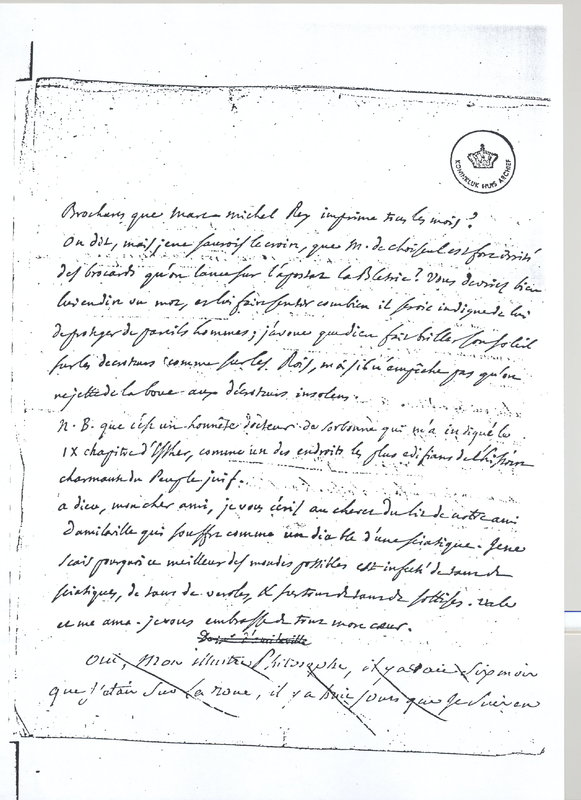 KONINKLIJK HUIS ARCHIEF
Brochures que marc michel Rey imprime tous les mois?
On dit, mais je ne saurois le croire, que M. de choiseul est fort irrité
des brocards qu'on lance sur l'apostat la Bletrie? Vous devriez bien
lui en dire un mot, et lui faire sentir combien il seroit indigne de lui
de proteger de pareils hommes; j'avoue que dieu fait briller son soleil
sur les decroteurs comme sur les Rois, mais il n'empêche pas qu'on
rejette de la boue aux décroteurs insolens.
N. B. que c'est un honnête docteur de sorbonne qui m'a indiqué le
IX chapitre d'Esther, comme un des endroits les plus edifians de l'histoire
charmante du Peuple juif.
a dieu, mon cher ami, je vous écris au chevet du lit de notre ami
Damilaville qui souffre comme un diable d'une sciatique. Je ne
scais pourquoi ce meilleur des mondes possibles est infecté de tant de
sciatiques, de tant de veroles, et surtout de tant de sottises. vale
et me ama. je vous embrasse de tout mon cœur.
Damilaville
Oui, Mon illustre Philosophe, il y a trois
que j'étais sur la roue, il y a huit jours que je suis en